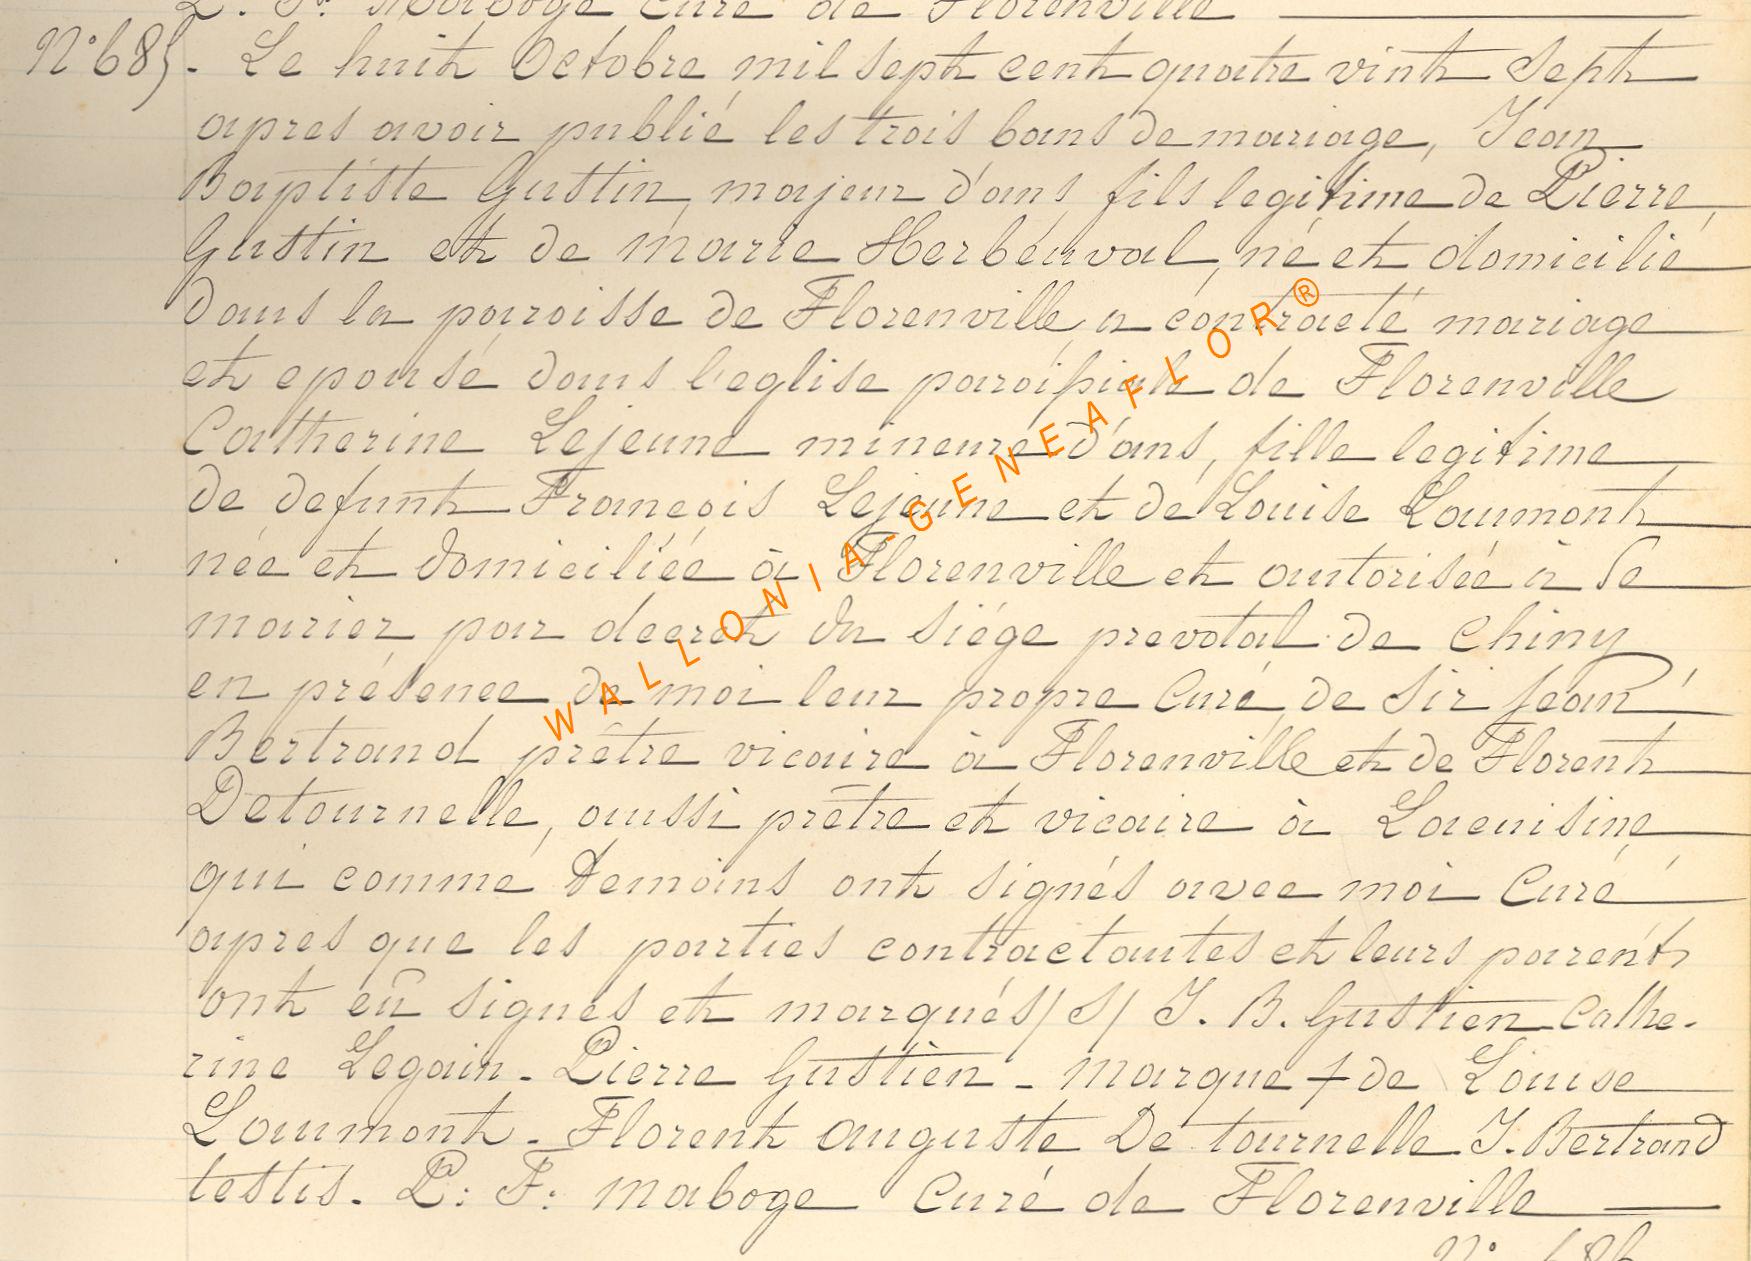 L. F. Maboge Curé de Florenville
N° 685. Le huit Octobre mil sept cent quatre vint sept
apres avoir publié les trois bans de mariage, Jean
Baptiste Gustin, majeur d'ans, fils legitime de Pierre
Gustin et de Marie Herbeuval, né et domicilié
dans la paroisse de Florenville, a contracté mariage
et epousé dans l'eglise paroissiale de Florenville
Catherine Lejeune mineure d'ans, fille legitime
de defunt François Lejeune et de Louise Laumont
née et domiciliée à Florenville et autorisée à se
marier par decret du siége prevotal de Chiny
en présence de moi leur propre Curé, de Sir Jean
Bertrand prêtre vicaire à Florenville et de Florent
Detournelle, aussi prêtre et vicaire à Lacuisine,
qui comme temoins ont signés avec moi Curé
apres que les parties contractantes et leurs parents
ont eû signés et marqués /S/ J. B. Gustien Cathe-
rine Legain - Pierre Gustien - marque + de Louise
Laumont - Florent Auguste De tournelle J. Bertrand
testis - L: F: Maboge Curé de Florenville
N° 686
WALLONIA-GENEAFLOR®